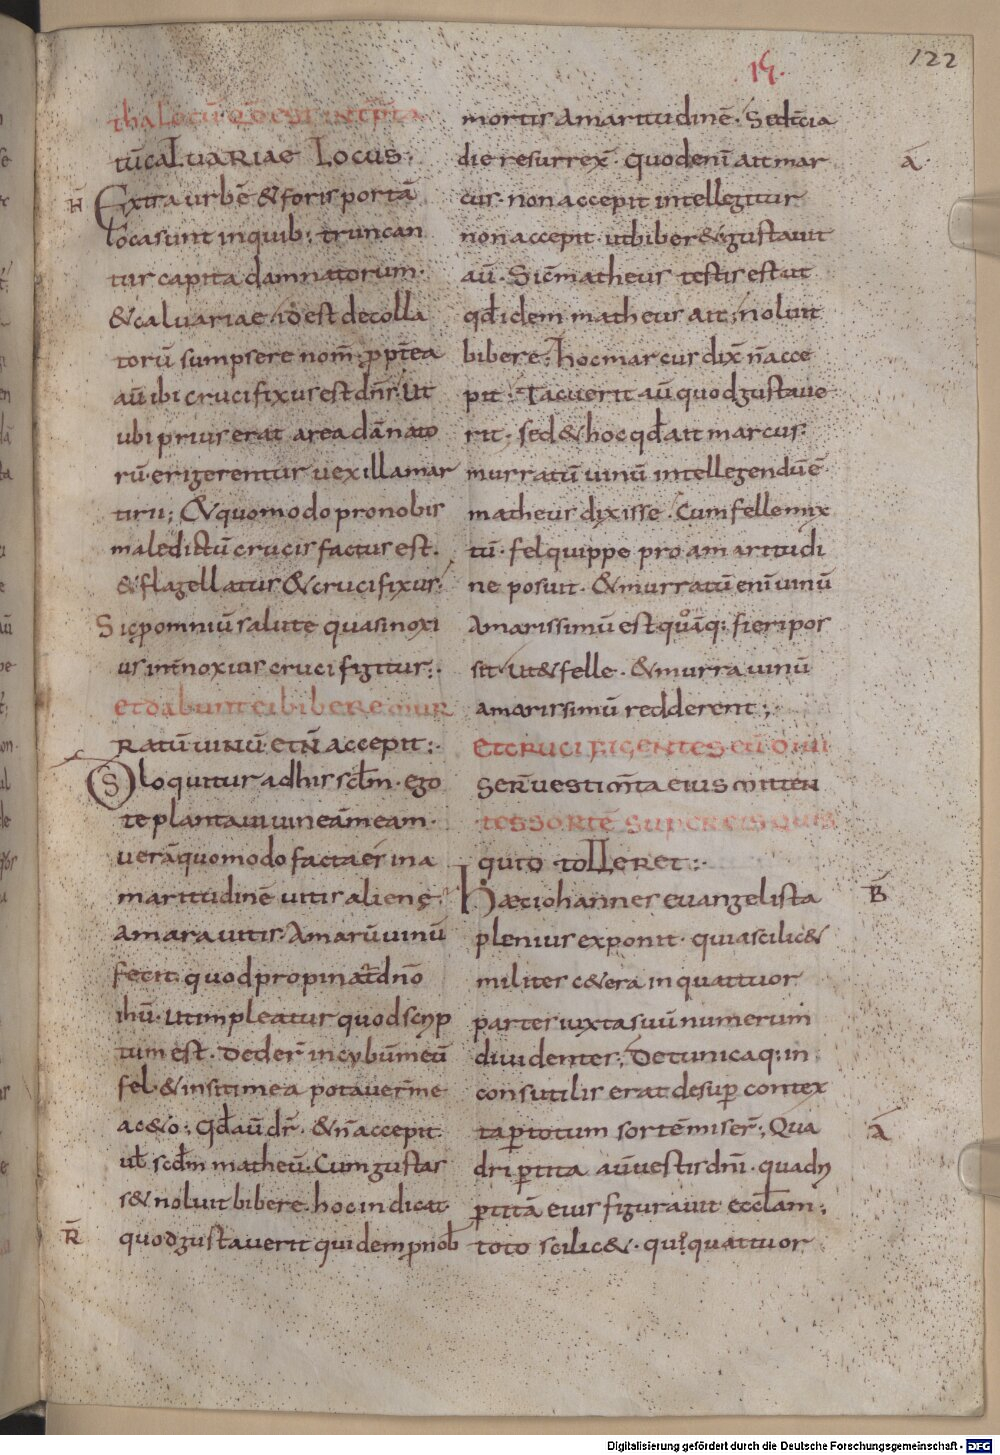 122
19.
tha locū qđ est int̄p̄ta
tū caLVARIAE Locus;
H̄ Extra urbē & foris portā
loca sunt in quib; truncan
tur capita damnatorum.
& caluariae idest decolla
torū sumpsere nom̄. ꝓpt̄ea
aū ibi crucifixus est dn̄s. ut
ubi prius erat area dānato
rū. erigerentur uexilla mar
tirii; Et quomodo pro nobis
maledictū crucis factus est.
& flagellatus & crucifixus;
Sic ꝑ omniū salute quasi noxi
us int̄ noxius cruci figitur;.
et dabunt ei bibere mur
RATŪ UINŪ ET N̄ accepit;.
S loquitur ad his scđm. ego
te plantaui uineā meam.
uerā quomodo facta es in a
maritudinē uitis alienę.
Amara uitis. Amarū uinū
fecit. quod propinat dn̄o
ih̄u. ut impleatur quod scrip
tum est. Deder̄ in cybū meū
fel. & in siti mea potauer̄ me
ac&o; qđ aū dr̄. & n̄ accepit.
ut̄ scđm matheū. Cum gustas
s& noluit bibere. hoc indicat.
R̄ quod gustauerit quidem ꝓ nob̄
mortis amaritudinē. Sed t̄cia
die resurrex̄. quod eni ait mar ā
cus. non accepit intellegitur
non accepit. ut biber& gustauit
aū. Sic matheus testis est ut
qđ idem matheus ait; noluit
bibere; hoc marcus dix̄ n̄ acce
pit; Tacuerit aū quod gustaue
rit. sed & hoc qđ ait marcus.
murratū uinū intellegendū ē.
matheus dixisse. Cum felle mix
tū. fel quippe pro amaritudi
ne posuit. & murratū eni uinū
Amarissimū est quāq; fieri pos
sit. ut & felle. & murra uinū
amarissimū redderent;
et cruci figentes eū diui
ser̄ uestim̄ta eius mitten
tes sortē super eis quis
quid tolleret;.
Haec iohannes euangelista B̄
plenius exponit. quia scilic&
milites c&era in quattuor
partes iuxta suū numerum
diuidentes; De tunica q; in
consutilis erat desuꝑ contex
ta ꝑ totum sortē miser̄; Qua ā
dri ꝑtita aū uestis dn̄i. quadri
ꝑtitā eius figurauit eccl̄am;
toto scilic&. qui quattuor
Digitalisierung gefördert durch die Deutsche Forschungsgemeinschaft - DFG